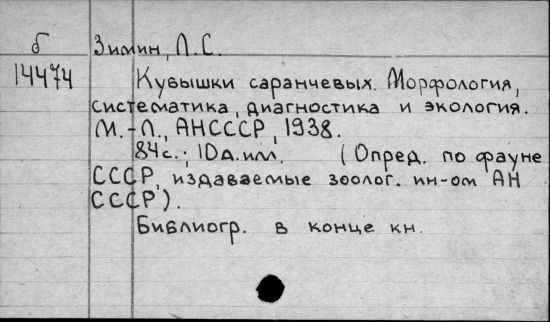 б Зимин, Л.С.
14474 Кубышки саранчевых. Морфология,
систематика, диагностика и экология.
М.-Л., АНСССР, 1938.
84с.; 10д.илл. (Опред. по фауне
СССР, издаваемые зоолог. ин-ом АН
СССР).
Библиогр. в конце кн.